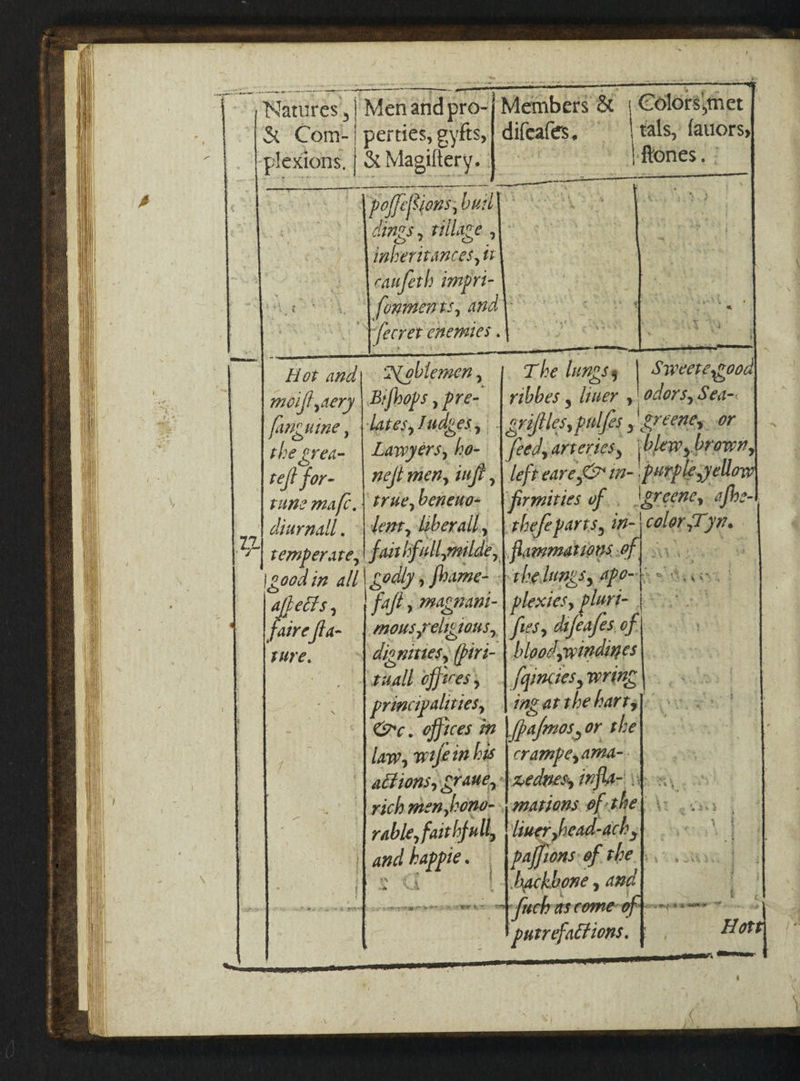 Natures,
& Com-
plexions.
Men and pro-
perties, gyfts,
& Magistery.
Members &
diſeaſes.
Colors, met
tals, ſauors,
ſtones.
poſſeſsions, buil
dings, tillage,
inheritances, it
cauſeth impri-
ſonments, and
ſecret enemies.
♃
Hot and
moiſt, aery
ſanguine,
the grea-
teſt for-
tune maſc.
diurnall.
temperate,
good in all
aſpects,
faire ſta-
ture.
Noblemen,
Biſhops, pre-
lates, Iudges,
Lawyers, ho-
neſt men, iuſt,
true, beneuo-
lent, liberall,
faithfull, milde,
godly, ſhame-
faſt, magnani-
mous, religious,
dignities, ſpiri-
tuall offices,
principalities,
&c. offices in
law, wiſe in his
actions, graue,
rich men, hono-
rable, faithfull,
and happie.
The lungs,
ribbes, liuer,
griſtles, pulſes,
ſeed, arteries,
left eare, & in-
firmities of
theſe parts, in-
flammations of
the lungs, apo-
plexies, pluri-
ſies, diſeaſes of
blood, windines
ſqincies, wring
ing at the hart,
ſpaſmos, or the
crampe, ama-
zednes, infla-
mations of the
liuer, head-ach,
paſſions of the
backbone, and
ſuch as come of
putrefactions.
Sweete, good
odors, Sea-
greene, or
blew, brown,
purple, yellow
greene, aſhe-
color, Tyn.
Hott